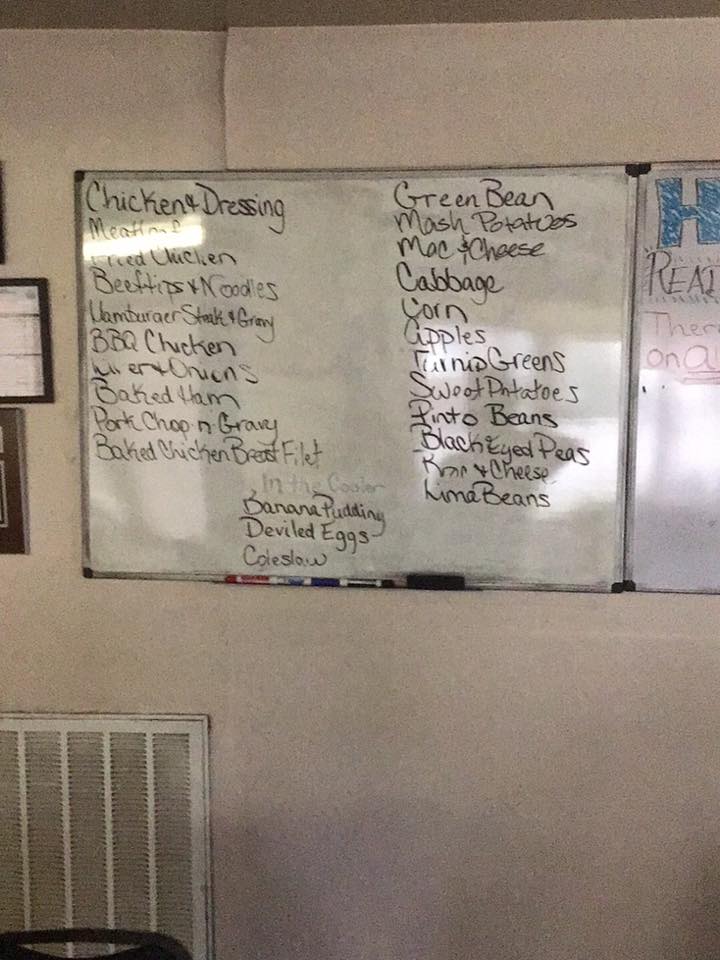 Chicken & Dressing
Meatloaf
Fried Chicken
Beeftips & Noodles
Hamburger Steak & Gravy
BBQ Chicken
Liver & Onions
Baked Ham
Pork Chop n Gravy
Baked Chicken Breast Filet
Green Bean
Mash Potatoes
Mac & Cheese
Cabbage
Corn
apples
Turnip Greens
Sweet Potatoes
Pinto Beans
Black Eyed Peas
& Cheese
Lima Beans
In the Cooler
Banana Pudding
Deviled Eggs
Coleslaw
H
REA
Ther
on a